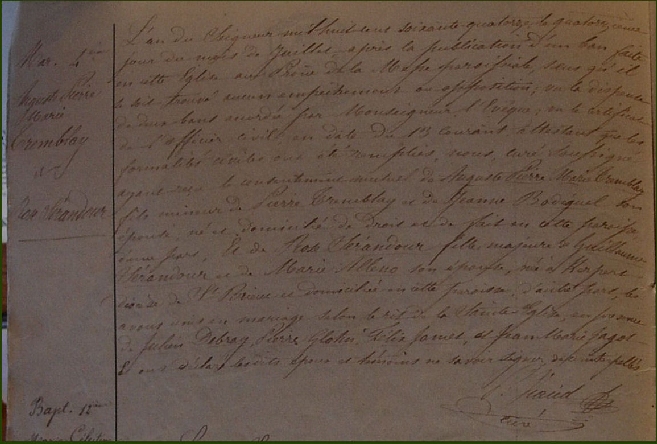 Mar. 4ème
Auguste Pierre
Marie
Tremblay
et
Thérandour
L'an du Seigneur mil huit cent soixante quatorze, le quatorzième
jour du mois de Juillet, après la publication d'un ban faite
en cette Eglise au Prône de la Messe paroissiale, sans qu'il
se soit trouvé aucun empêchement ou opposition; vu la dispense
de deux bans accordée par Monseigneur l'Evêque; vu le certificat
de l'officier civil en date du 13 courant attestant que les
formalités civiles ont été remplies, nous, curé soussigné
ayant reçu le consentement mutuel de Auguste Pierre Marie Tremblay
fils mineur de Pierre Tremblay et de Jeanne son
épouse, né et domicilié de droit et de fait en cette paroisse
d'une part, Et de Thérandour fille majeure de Guillaume
Thérandour et de Marie son épouse, née à
de St et domiciliée en cette paroisse d'autre part, les
avons unis en mariage selon le rit de la Sainte Eglise, en présence
de Julien Pierre et Jean Marie Jagot
Et ont déclaré époux et témoins ne savoir signer,
curé
Bapt. 12ème